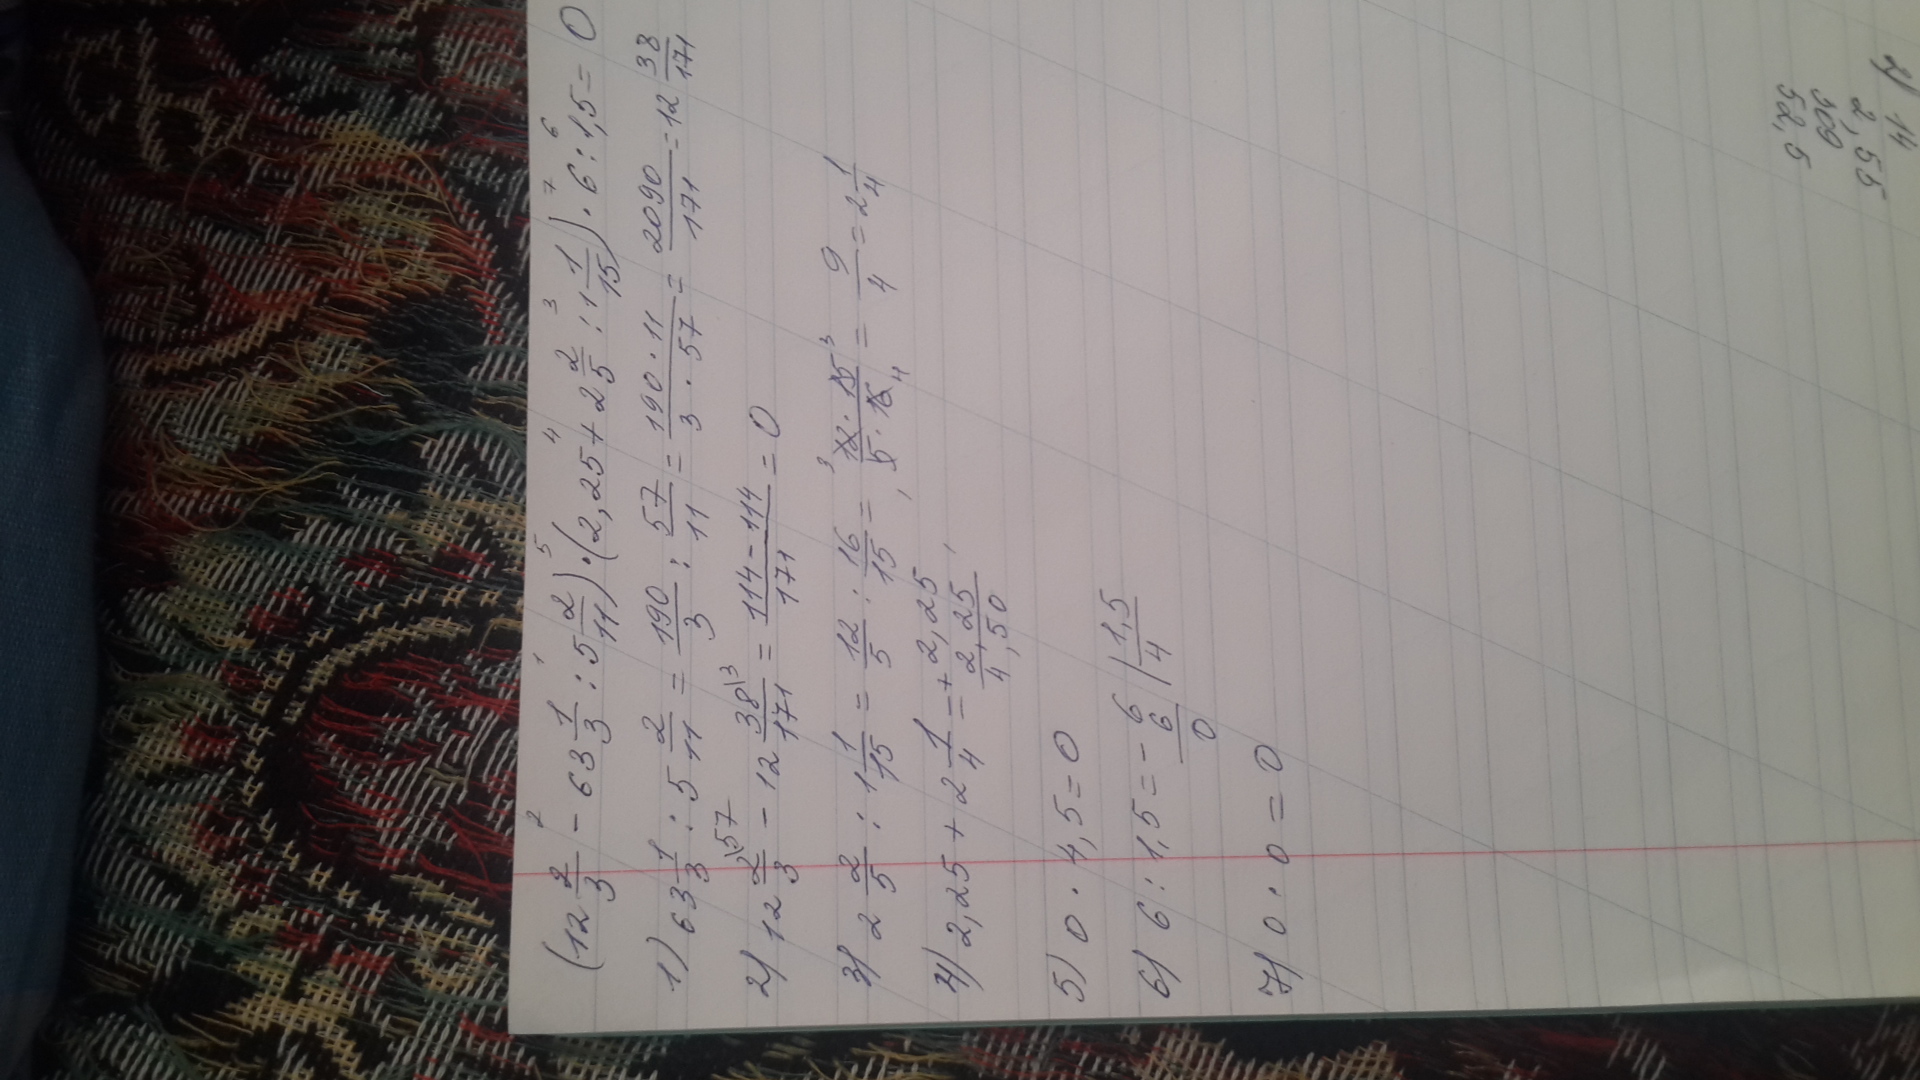 (12 2/3 - 63 1/3 : 5 2/11) · (2,25 + 2 2/5 : 1 1/15) · 6 : 1,5 = 0
1) 63 1/3 : 5 2/11 = 190/3 : 57/11 = 190 · 11/3 · 57 = 2090/171 = 12 38/171
2) 12 2\57/3 - 12 38\3/171 = 114 - 114/171 = 0
3) 2 2/5 : 1 1/15 = 12/5 : 16/15 = 12 · 15/5 · 16 = 9/4 = 2 1/4
4) 2,25 + 2 1/4 = + 2,25
2,25
4,50
5) 0 · 4,5 = 0
6) 6 : 1,5 = - 6 | 1,5
6 4
0
7) 0 · 0 = 0
2) 14
2,55
309
52,5